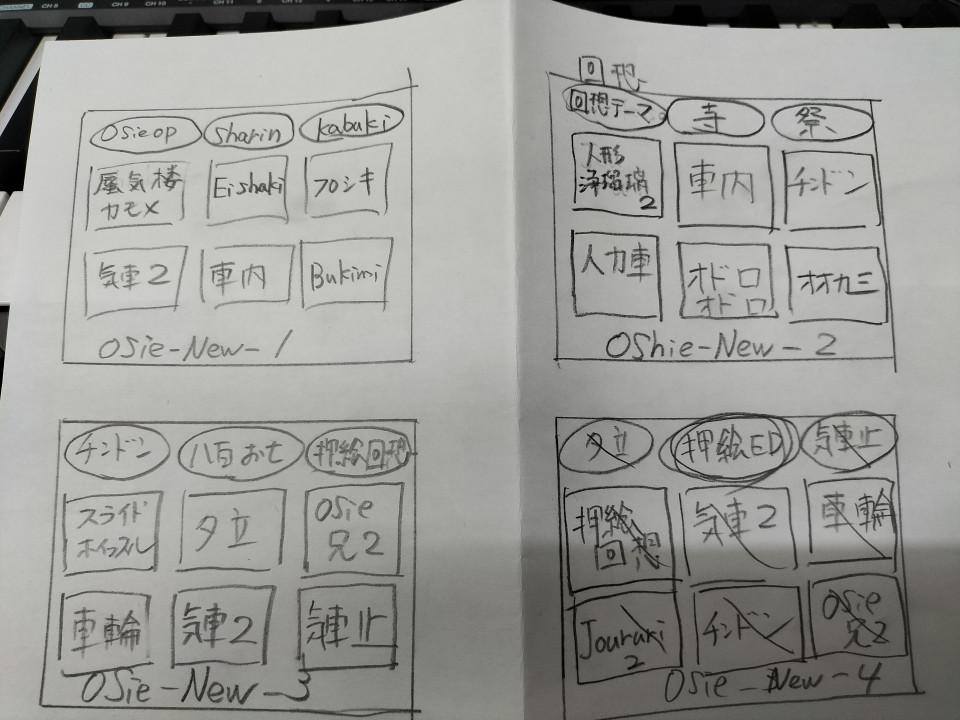 Osie op
Sharin
kabuki
蜃気楼
カモメ
Eishaki
フロシキ
気車2
車内
Bukimi
OSie-New-1
回想
回想テーマ
寺
祭
人形
浄瑠璃
2
車内
チンドン
人力車
オドロ
オドロ
オオカミ
OShie-New-2
チンドン
八百お七
押絵回想
スライド
ホイッスル
夕立
OSie
兄2
車輪
気車2
気車止
OSie-New-3
夕立
押絵ED
気車止
押絵
回想
気車2
車輪
Jouruki
2
チンドン
OSie
兄2
OSie-New-4